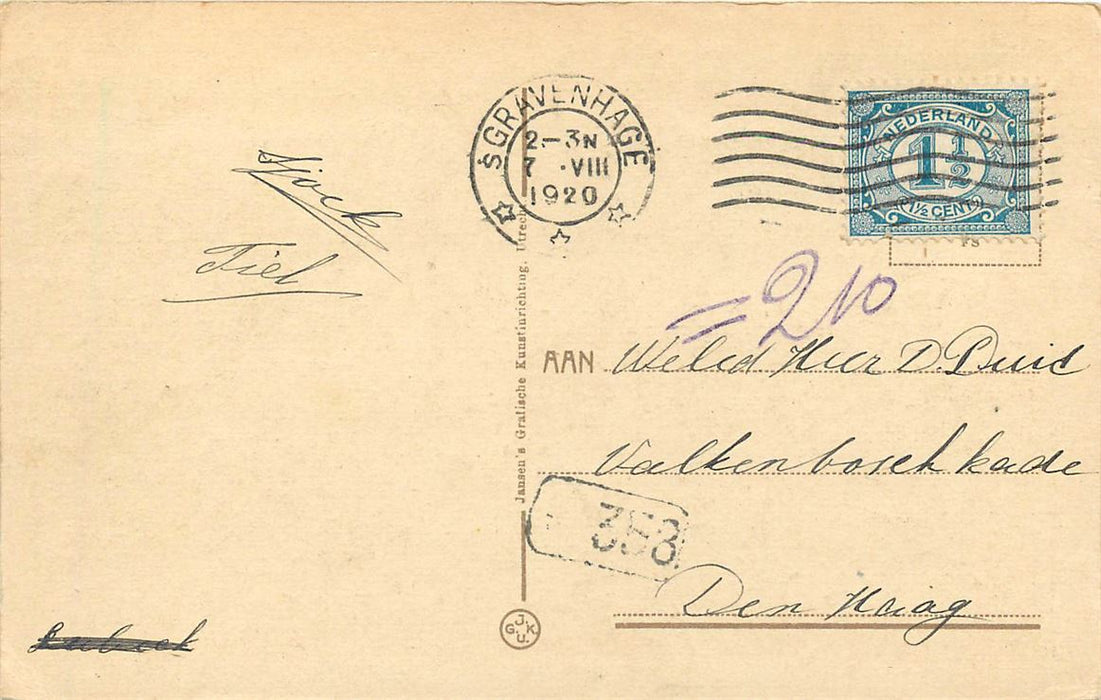 'SGRAVENHAGE
2-3N
7 ·VIII
1920
NEDERLAND
1 1/2
(1½ CENT)
Tiel
=
210
AAN Weled Heer D. Duid
Valkenbosch kade
358
Den Haag
Jansen's Grafische Kunstinrichting, Utrecht
J.
G. K.
U.